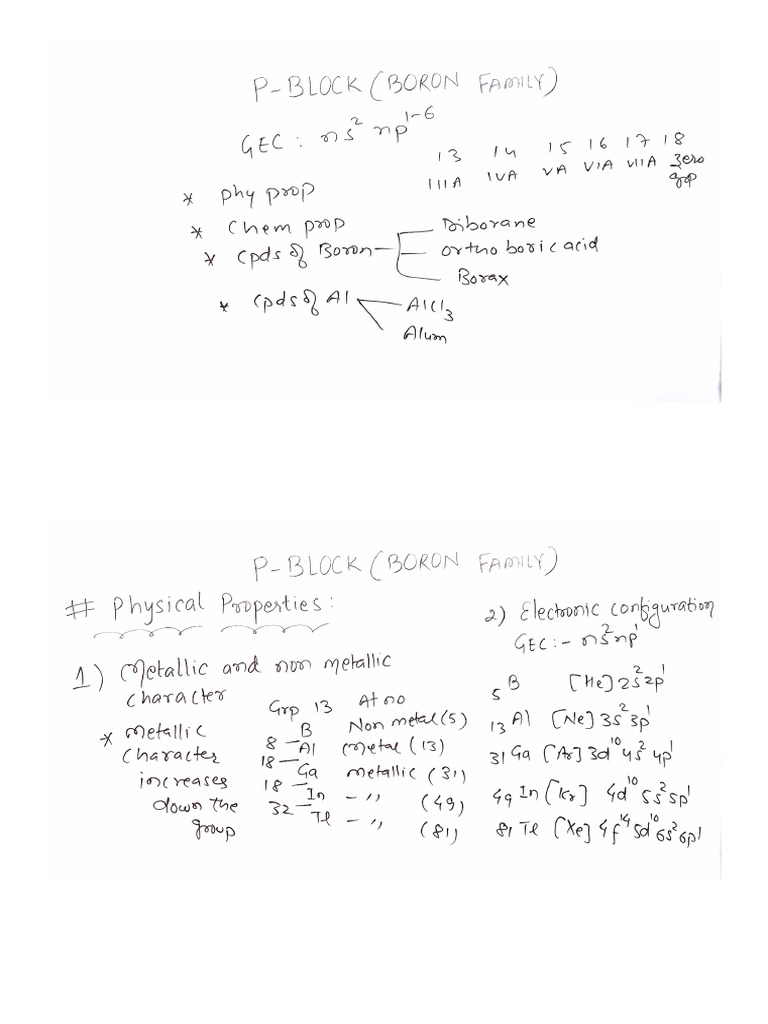 P-BLOCK (BORON FAMILY)
GEC : ns² np¹⁻⁶
13 14 15 16 17 18
IIIA IVA VA VIA VIIA Zero grp
* phy prop
* Chem prop
* Cpds of Boron — Diborane
Ortho boric acid
Borax
* Cpds of Al — AlCl₃
Alum
P-BLOCK (BORON FAMILY)
## Physical Properties:
1) Metallic and non metallic
character
Grp 13 At no
* Metallic
character
increases
down the
group
B Non metal (5)
8 —
Al Metal (13)
18 —
Ga Metallic (31)
18 —
In — ,, (49)
32 —
Tl — ,, (81)
2) Electronic configuration
GEC:- ns²np¹
₅B [He] 2s²2p¹
₁₃Al [Ne] 3s²3p¹
₃₁Ga [Ar] 3d¹⁰ 4s² 4p¹
₄₉In [Kr] 4d¹⁰ 5s²5p¹
₈₁Tl [Xe] 4f¹⁴ 5d¹⁰ 6s²6p¹